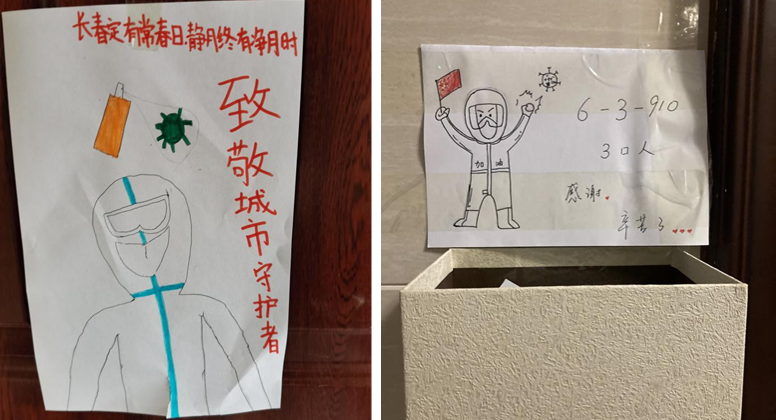 长春定有常春日,静月终有净月时
致敬城市守护者
6-3-910
3口人
加油
感谢.
辛苦了